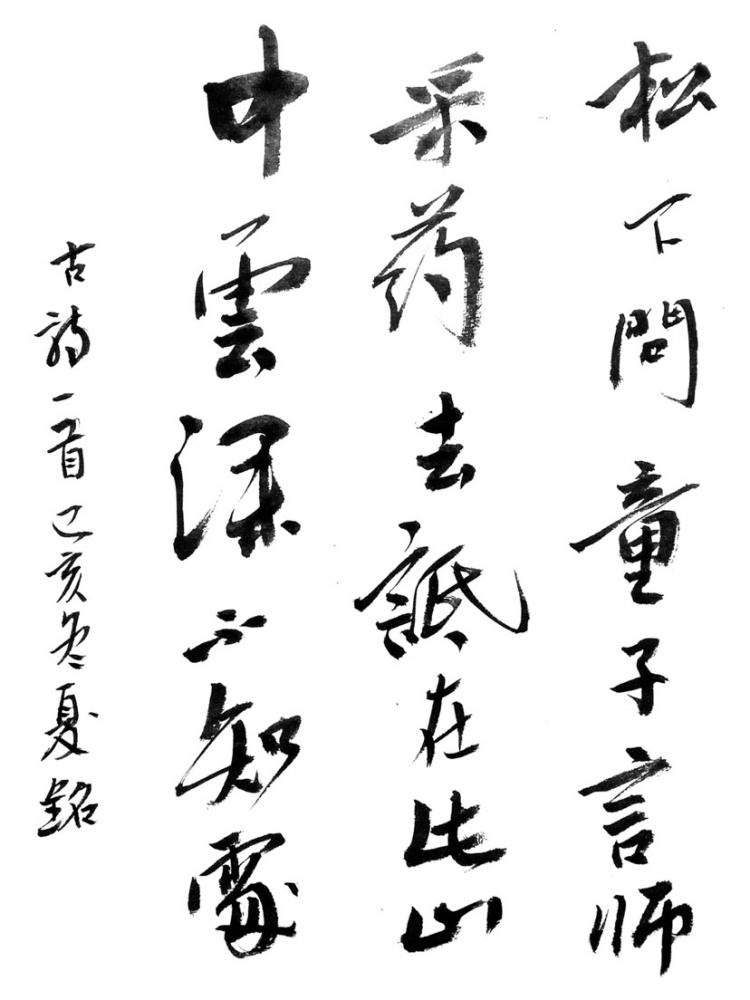 松下問童子言師
采药去祗在此山
中雲深不知處
古詩一首己亥冬夏銘